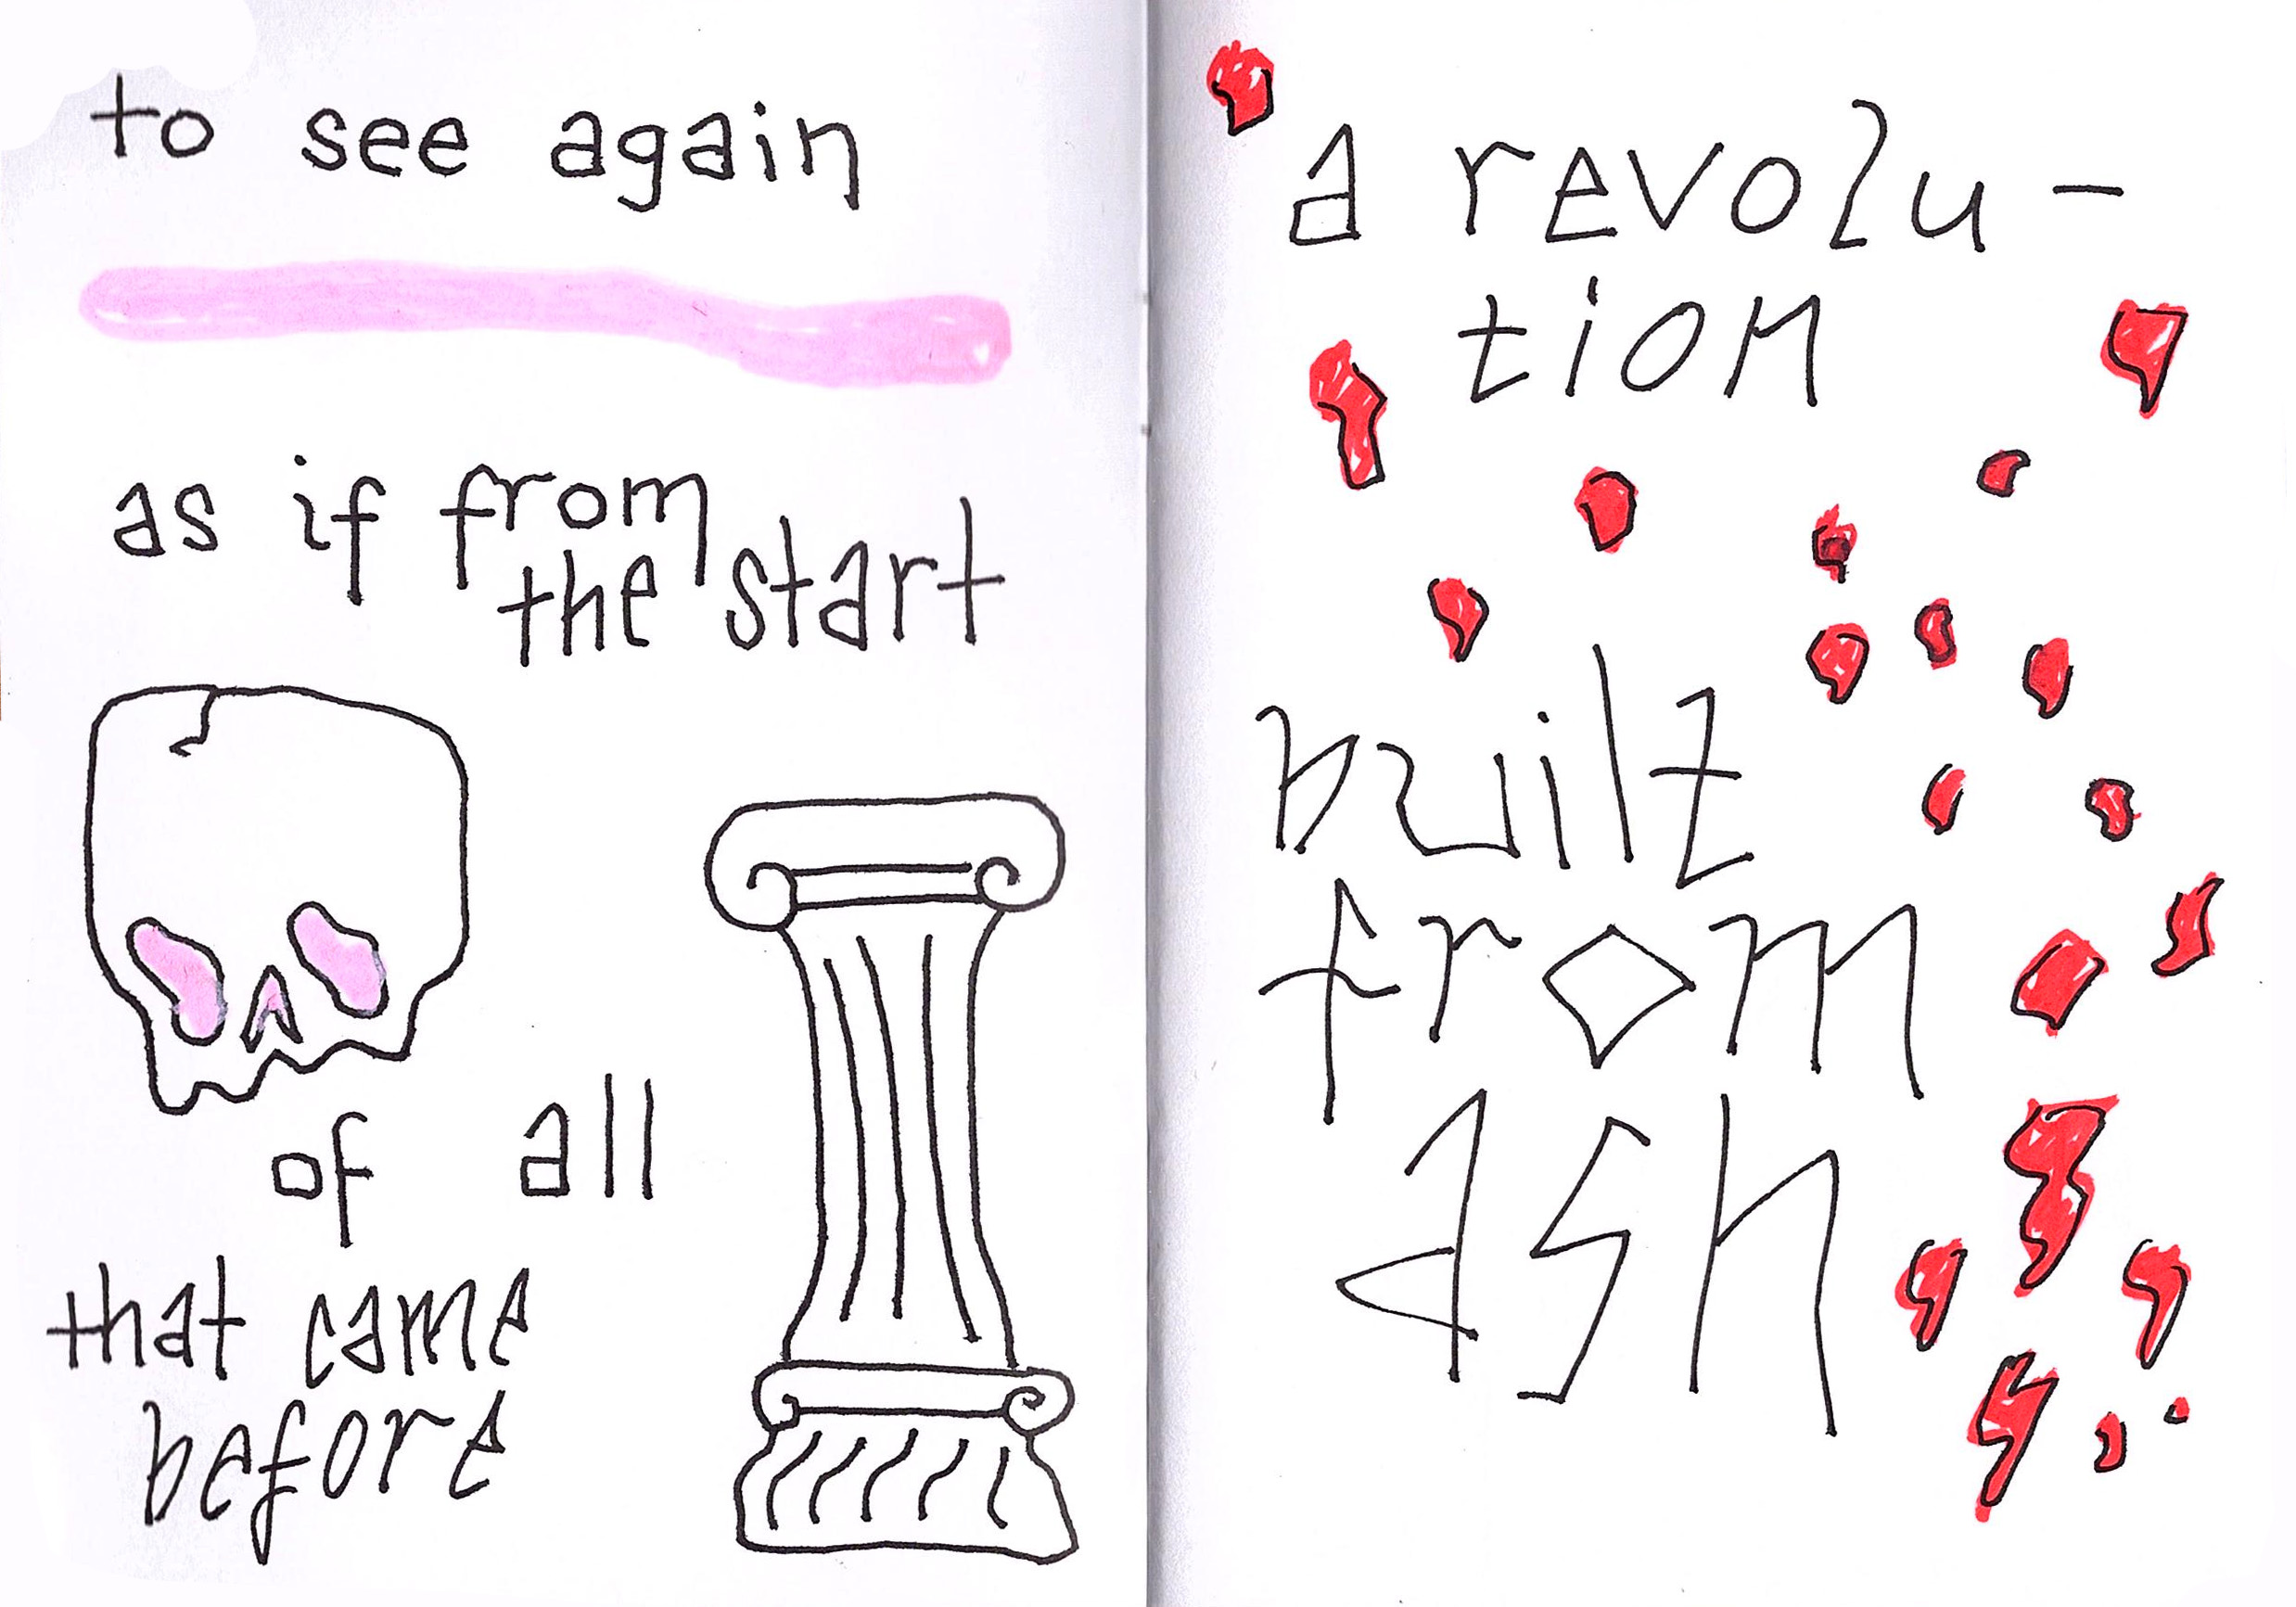 to see again
as if from
the start
of all
that came
before
a revolu-
tion
built
from
ash